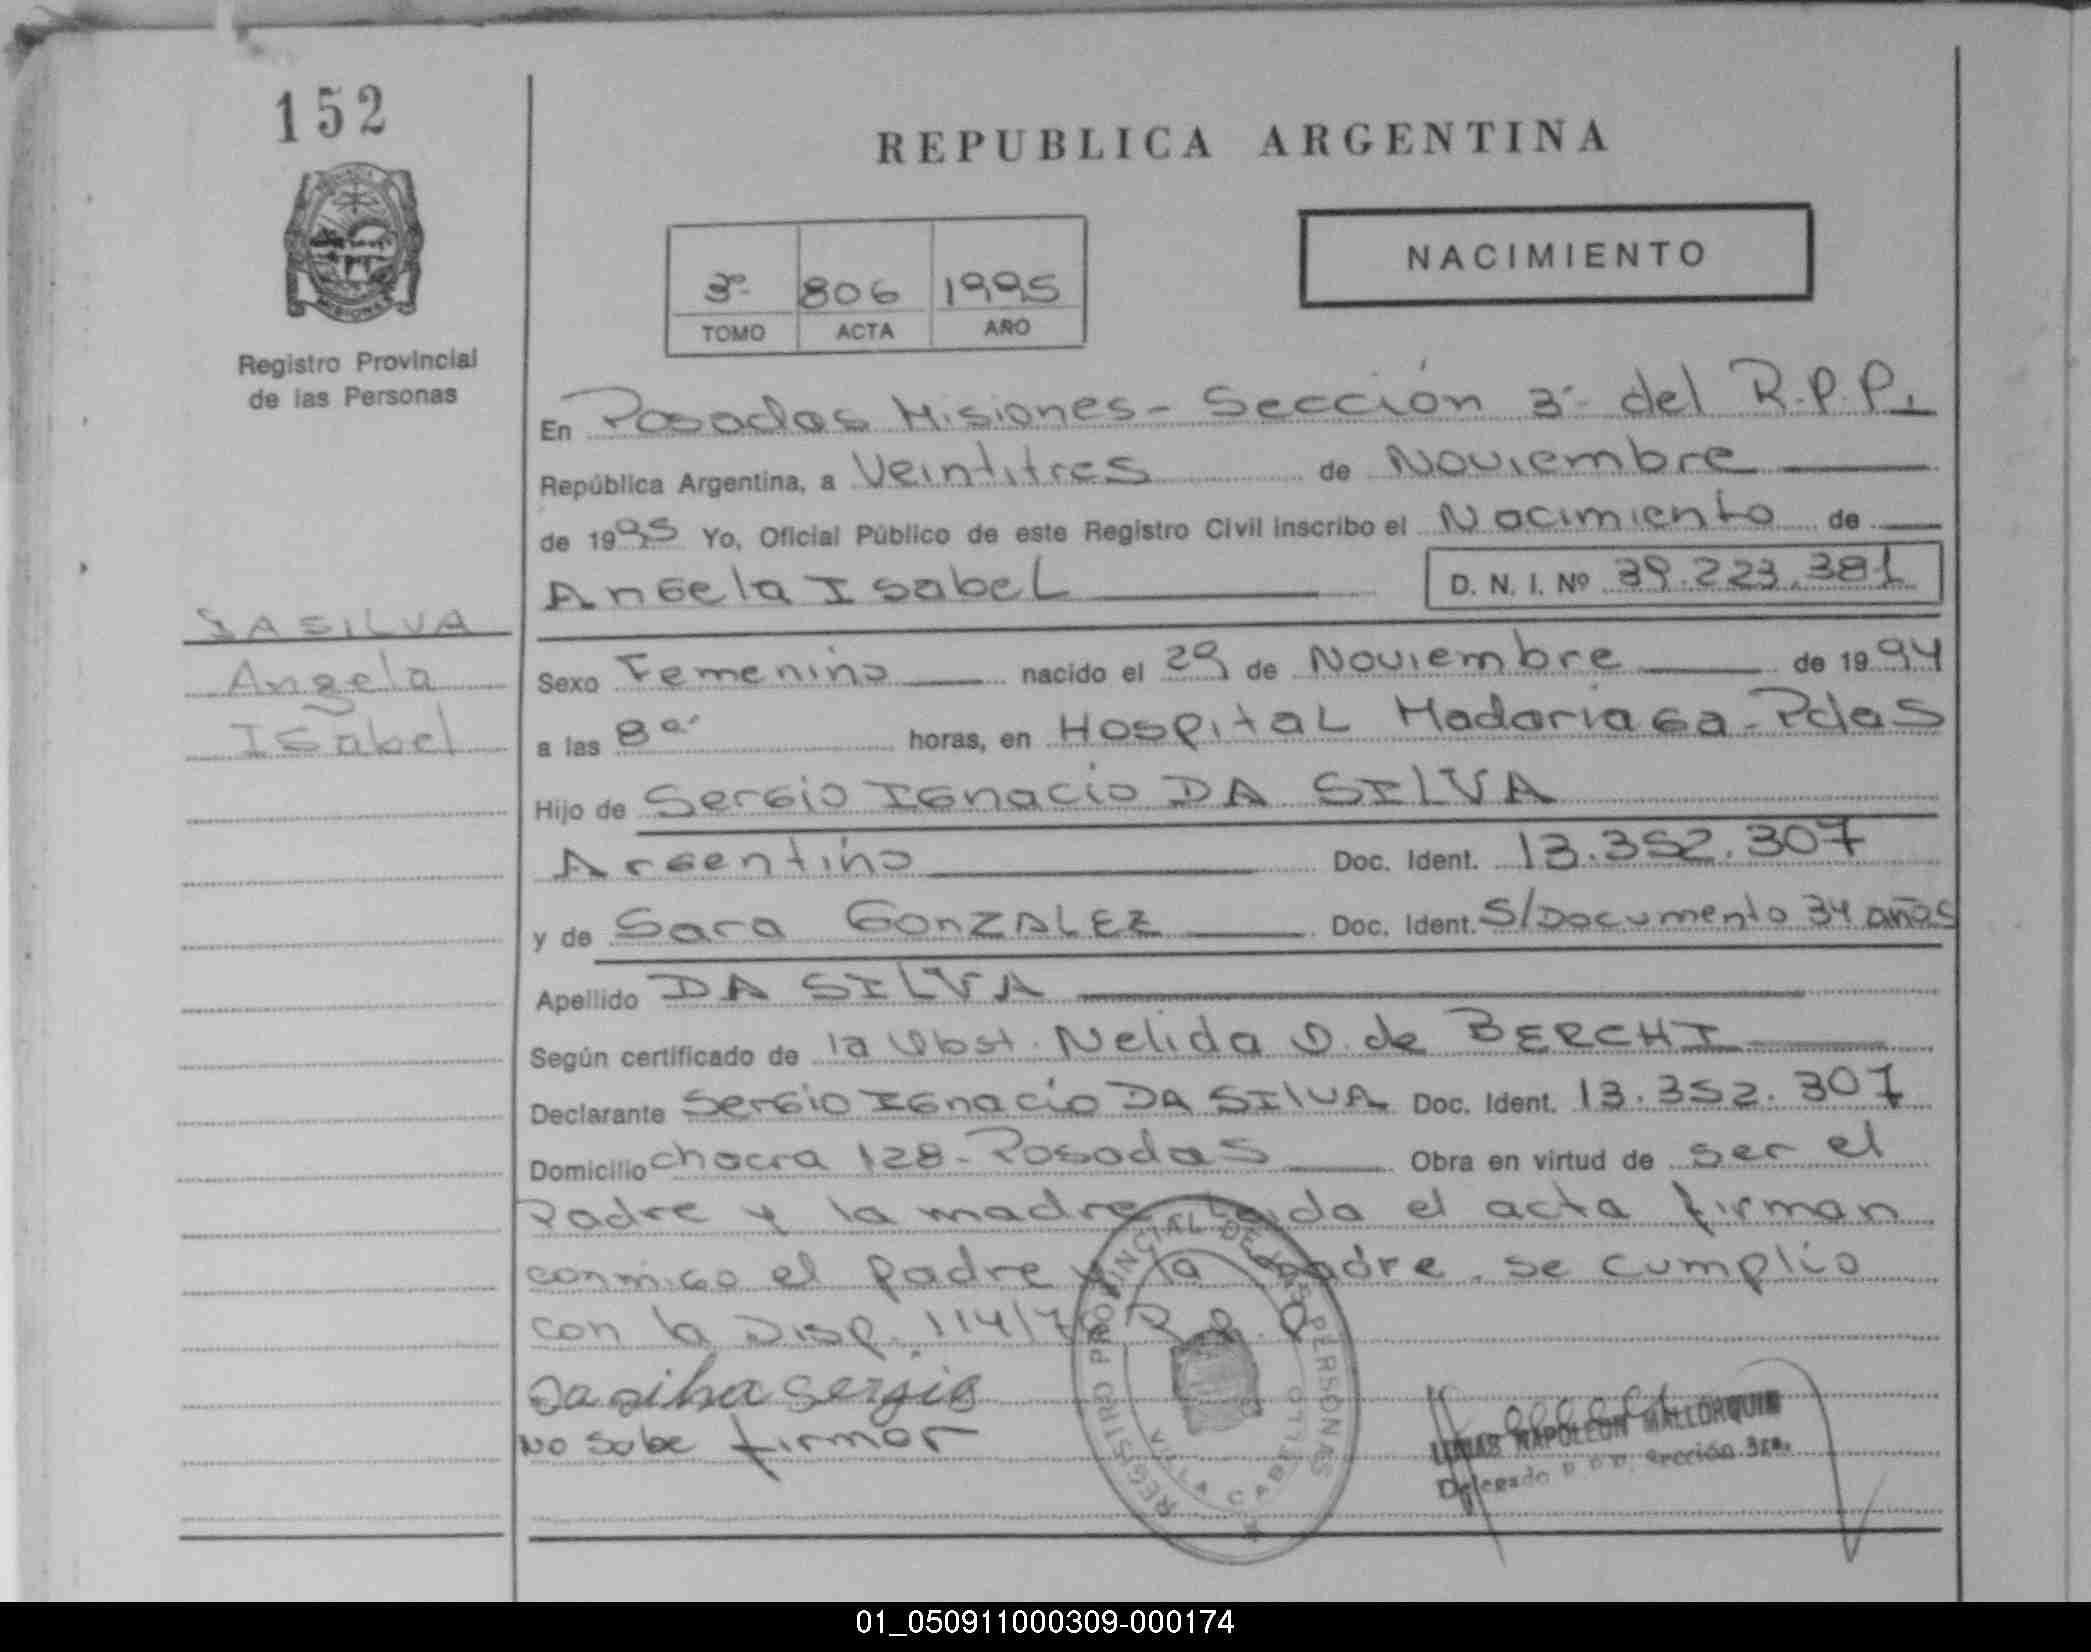 152
REPUBLICA ARGENTINA
NACIMIENTO
3º 806 1995
TOMO ACTA AÑO
Registro Provincial
de las Personas
En Posadas Misiones - Sección 3ª del R.P.P.
República Argentina, a Veintitres de Noviembre
de 1995 Yo, Oficial Público de este Registro Civil inscribo el Nacimiento de
Angela Isabel D. N. I. Nº 39.223.381
DA SILVA
Angela
Isabel
Sexo Femenino nacido el 29 de Noviembre de 1994
a las 8ª horas, en Hospital Madariaga - Pdas
Hijo de Sergio Ignacio DA SILVA
Argentino Doc. Ident. 13.352.307
y de Sara GONZALEZ Doc. Ident. S/Documento 34 años
Apellido DA SILVA
Según certificado de la Obst. Nelida O. de BERCHI
Declarante Sergio Ignacio DA SILVA Doc. Ident. 13.352.307
Domicilio chacra 128 - Posadas Obra en virtud de ser el
Padre y la madre leida el acta firman
conmigo el padre y la madre. se cumplio
con la Disp. 114/7
Da silva sergio
No sabe firmar
REGISTRO PROVINCIAL DE LAS PERSONAS
VILLA CABELLO
NAPOLEON MALLORQUIN
Delegado Sección 3ra.
01_050911000309-000174